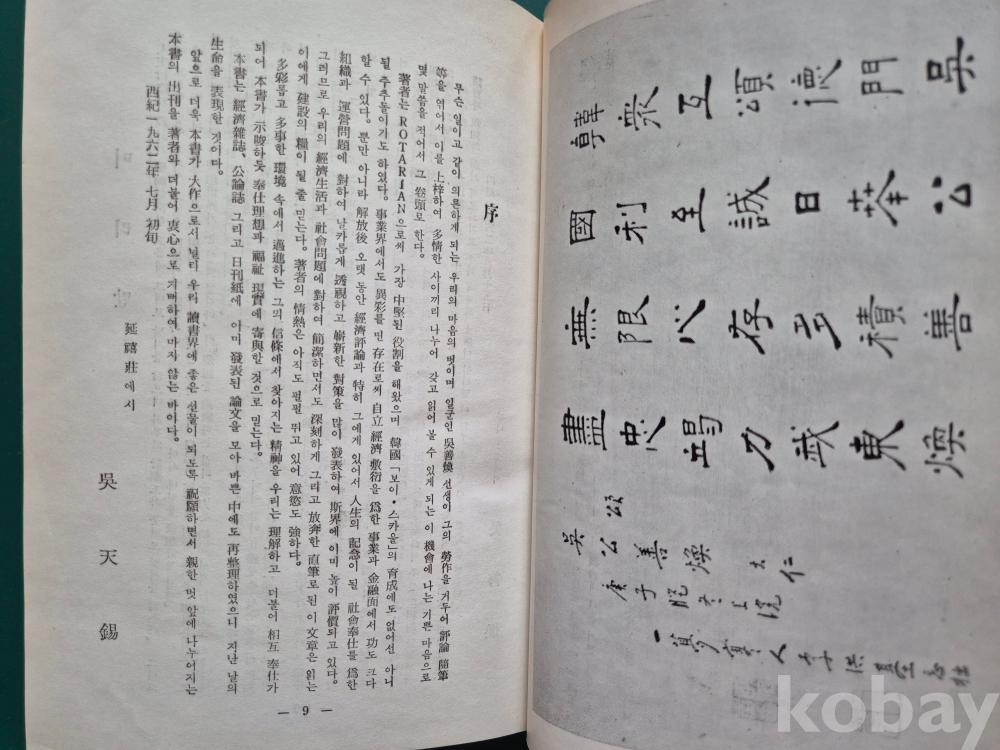 序
무슨 일이고 같이 의론하게 되는 우리의 마음의 벗이며 일군인 吳善煥 선생이 그의 勞作을 거두어 評論 隨筆
等을 엮어서 이를 上梓하여 多情한 사이끼리 나누어 갖고 읽어 볼 수 있게 되는 이 機會에 나는 기쁜 마음으로
몇 말씀을 적어서 그 卷頭로 한다.
著者는 ROTARIAN으로써 가장 中堅된 役割을 해왔으며 韓國「보이·스카울」의 育成에도 없어선 아니
될 추추돌이기도 하였다. 事業界에서도 異彩를 띤 存在로써 自立經濟 敷衍을 爲한 事業과 金融面에서 功도 크다
할 수 있다. 뿐만 아니라 解放後 오랫 동안 經濟評論과 特히 그에게 있어서 人生의 記念이 될 社會奉仕를 爲한
組織과 運營問題에 對하여 날카롭게 透視하고 嶄新한 對策을 많이 發表하여 斯界에 이미 높이 評價되고 있다.
그러므로 우리의 經濟生活과 社會問題에 對하여 簡潔하면서도 深刻하게 그리고 放奔한 直筆로 된 이 文章은 읽는
이에게 建設의 糧이 될 줄 믿는다. 著者의 情熱은 아직도 펄펄 뛰고 있어 意慾도 強하다.
多彩롭고 多事한 環境 속에서 邁進하는 그의 信條에서 찾아지는 精神을 우리는 理解하고 더불어 相互 奉仕가
되어 本書가 示唆하듯 奉仕理想과 福祉 現實에 寄與한 것으로 믿는다.
本書는 經濟雜誌、公論誌 그리고 日刊紙에 이미 發表된 論文을 모아 바쁜 中에도 再整理하였으니 지난 날의
生命을 表現한 것이다.
앞으로 더욱 本書가 大作으로서 널리 우리 讀書界에 좋은 선물이 되도록 祝願하면서 親한 벗 앞에 나누어지는
本書의 出刊을 著者와 더불어 衷心으로 기뻐하여 마지 않는 바이다。
西紀一九六二年 七月 初旬
延禧莊에서
吳天錫
— 9 —
吳公善煥
門 積東
德日
頌誠存力
互至心竭
衆利限忠
韓國無盡
頌
吳公善煥大仁
庚子
kobay